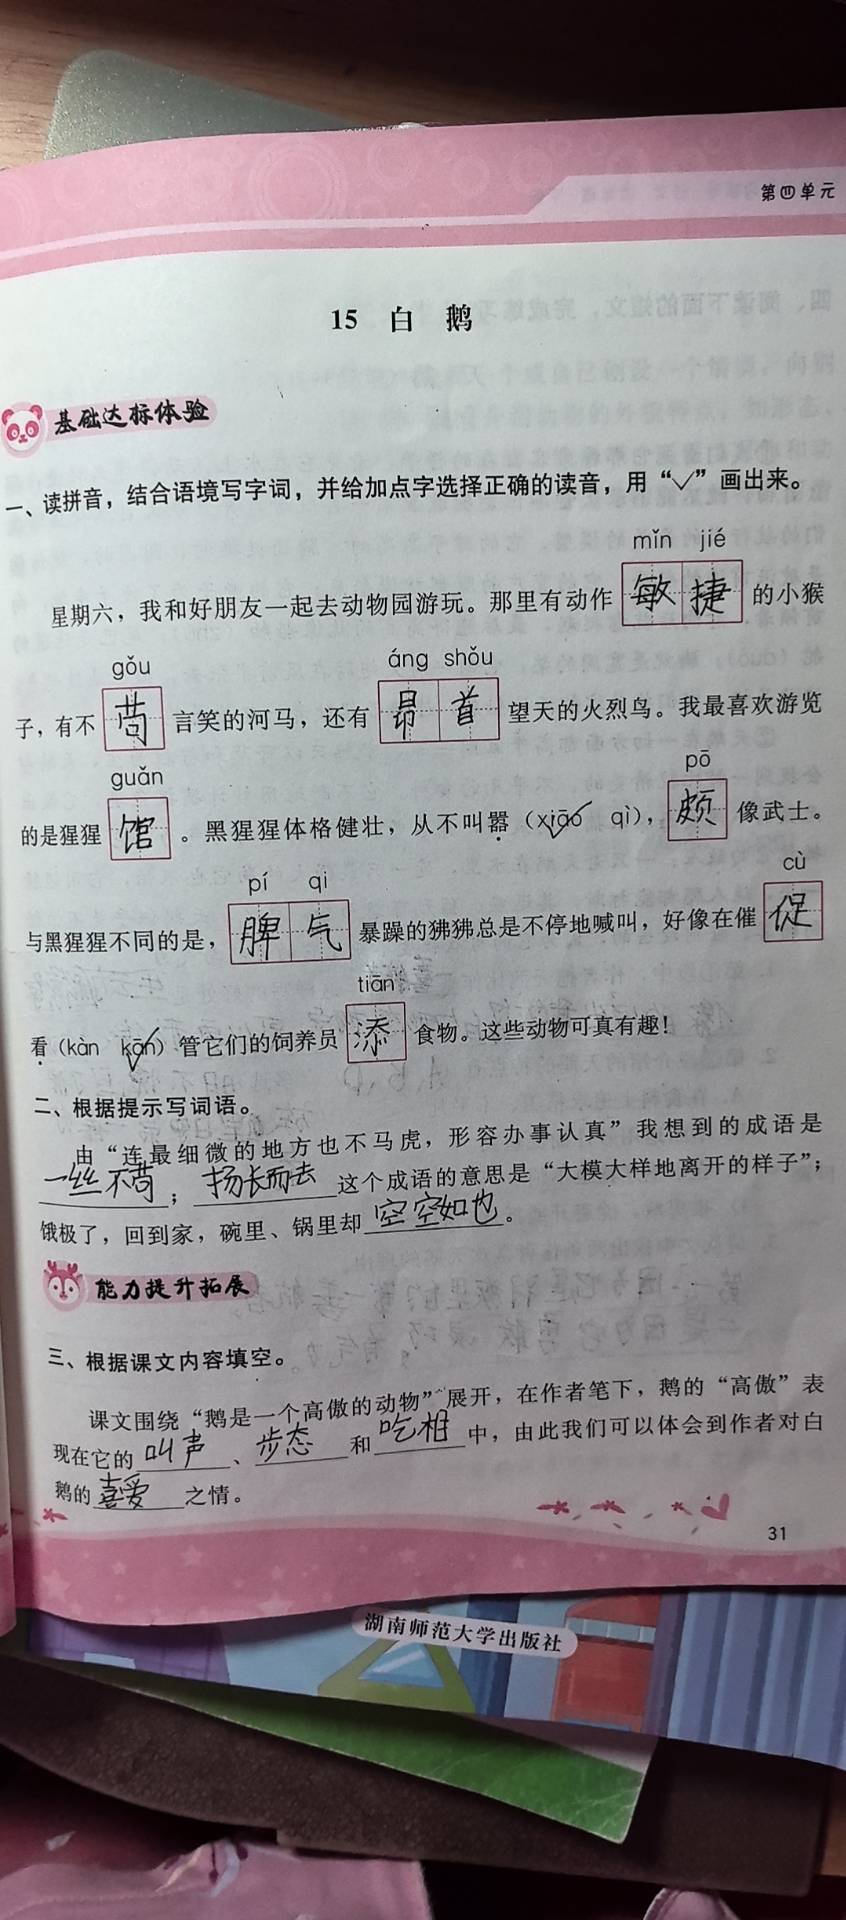 第四单元
15 白 鹅
基础达标体验
一、读拼音，结合语境写字词，并给加点字选择正确的读音，用“√”画出来。
mǐn jié
星期六，我和好朋友一起去动物园游玩。那里有动作 敏捷 的小猴
gǒu áng shǒu
子，有不 苟 言笑的河马，还有 昂首 望天的火烈鸟。我最喜欢游览
guǎn pō
的是猩猩 馆 。黑猩猩体格健壮，从不叫嚣（xiāo√ qì），颇 像武士。
pí qi cù
与黑猩猩不同的是，脾气 暴躁的狒狒总是不停地喊叫，好像在催 促
tiān
看（kàn kān√）管它们的饲养员 添 食物。这些动物可真有趣！
二、根据提示写词语。
由“连最细微的地方也不马虎，形容办事认真”我想到的成语是
一丝不苟；扬长而去 这个成语的意思是“大模大样地离开的样子”；
饿极了，回到家，碗里、锅里却 空空如也。
能力提升拓展
三、根据课文内容填空。
课文围绕“鹅是一个高傲的动物”展开，在作者笔下，鹅的“高傲”表
现在它的 叫声、步态 和 吃相 中，由此我们可以体会到作者对白
鹅的 喜爱 之情。
31
湖南师范大学出版社